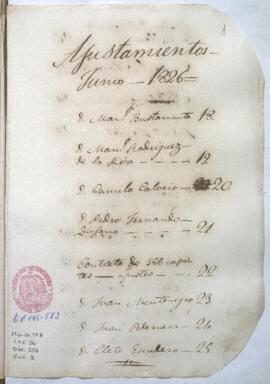 1
Ajustamientos
Junio — 1826
d. Man.l Bustamante 18.
d. Man.l Rodriguez
de la Rosa — 19
d. Camilo Calorio — 20
d. Pedro Fernando
21
Contrata de 386
ajustes — 22
d. Juan Montenegro 23
d. Juan 24
d. Cleto Escudero — 25.